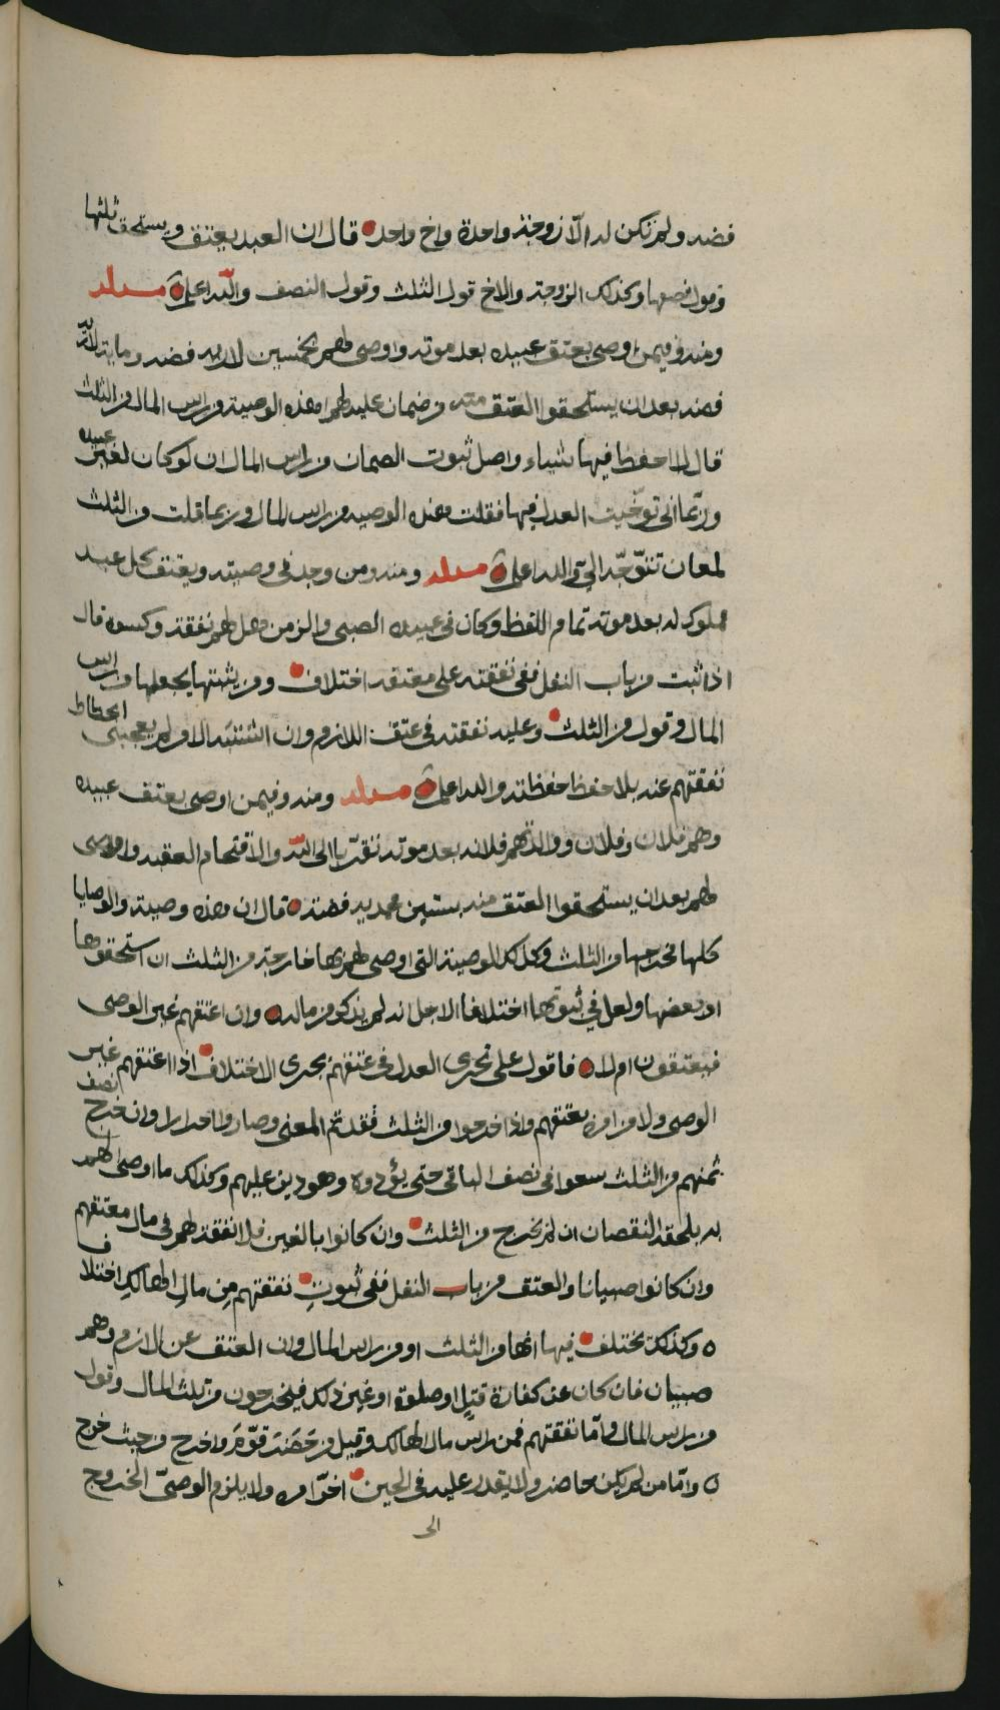 فضه ولم تكن له الا زوجة واحدة واخ واحد قال ان العبد يعتق ويستحق ثلثها
وقول نصفها وكذلك الزوجة والاخ قول الثلث وقول النصف والله اعلم مسئلة
ومنه وفيمن اوصى بعتق عبيده بعد موته واوصى لهم بخمسين لارية فضه وماية لارية
فضه بعد ان يستحقوا العتق منه من ضمان عليه لهم اهذه الوصية من راس المال ام من الثلث
قال لا احفظ فيها شياء واصل ثبوت الضمان من راس المال ان لو كان لغير عبيده
وربما اني توخيت العدل فيها فقلت هذه الوصيه من راس المال وربما قلت من الثلث
لمعان تتوجه الي والله اعلم مسئلة ومنه ومن وجد في وصيته ويعتق كل عبد
مملوك له بعد موته تمام اللفظ وكان في عبيده الصبي والزمن هل لهم نفقة وكسوة قال
اذا ثبت من باب النفل ففي نفقته على معتقه اختلاف ومن يثبتها يجعلها من راس
المال وقول من الثلث وعليه نفقته في عتق اللازم وان اشتبه الامر لم يعجبني انحطاط
نفقتهم عنه بلا حفظ احفظته والله اعلم مسئلة ومنه وفيمن اوصى بعتق عبيده
وهم فلان وفلان ووالدتهم فلانه بعد موته تقربا الى الله ولاقتحام العقبه واوصى
لهم بعد ان يستحقوا العتق منه بستين محمدية فضة قال ان هذه وصية والوصايا
كلها مخرجها من الثلث وكذلك الوصية التي اوصى لهم بها خارجة من الثلث ان استحقوها
او بعضها ولعل في ثبوتها اختلافا لاجل انه لم يذكر من ماله وان اعتقهم غير الوصي
فيعتقون ام لا فاقول على تحري العدل في عتقهم يجري الاختلاف اذا اعتقهم غير
الوصي ولا من امره بعتقهم واذا خرجوا من الثلث فقد تم المعنى وصاروا احرارا وان خرج نصف
ثمنهم من الثلث سعوا في نصف الباقي حتى يؤدوه وهو دين عليهم وكذلك ما اوصى لهم
به يلحقه النقصان ان لم يخرج من الثلث وان كانوا بالغين فلا نفقة لهم في مال معتقهم
وان كانوا صبيانا والعتق من باب النفل ففي ثبوت نفقتهم من مال الهالك اختلاف
وكذلك يختلف فيها انها من الثلث او من راس المال وان العتق عن لازم وهم
صبيان فان كان عن كفارة قتل او صلوة او غير ذلك فيخرجون من ثلث المال وقول
من راس المال واما نفقتهم فمن راس مال الهالك وقيل من حضر قوم واخرج من حيث خرج
واما من لم يكن حاضر ولا يقدر عليه في الحين اخر امره ولا يلزم الوصي الخروج
الى